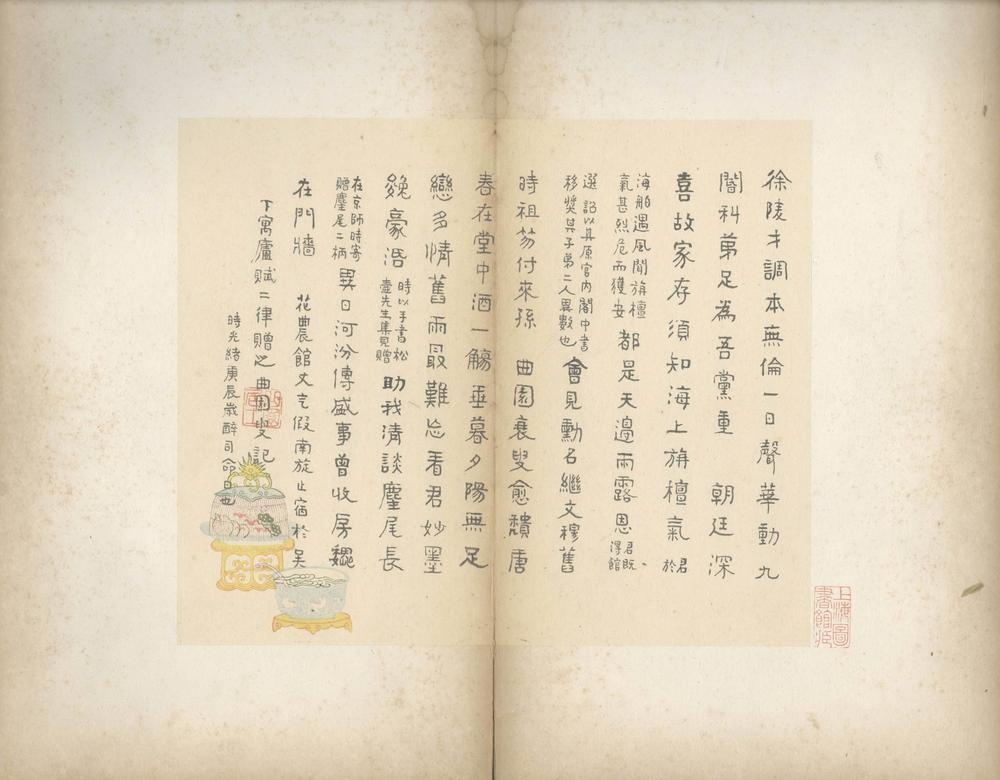 徐陵才調本無倫一日聲華動九
閽科弟足為吾黨重 朝廷深
喜故家存須知海上旃檀氣君於
海舶遇風聞旃檀
氣甚烈危而獲安
都是天邊雨露恩君既
淂館
選 詔以其原官內閣中書
移獎其子弟二人異數也
會見勳名繼文穆舊
時祖笏付來孫 曲園衰叟愈穨唐
春在堂中酒一觴垂暮夕陽無足
戀多情舊雨最難忘看君妙墨
豪湉
時以手書松
壺先生集見贈
助我清談麈尾長
在京師時寄
贈麈尾二柄
異日河汾傳盛事曾收房魏
在門牆 花農館丈乞假南旋止宿於吴
下寓廬賦二律贈之曲園叟記
時光緒庚辰歲醉司命日也
上海圖
書館臧